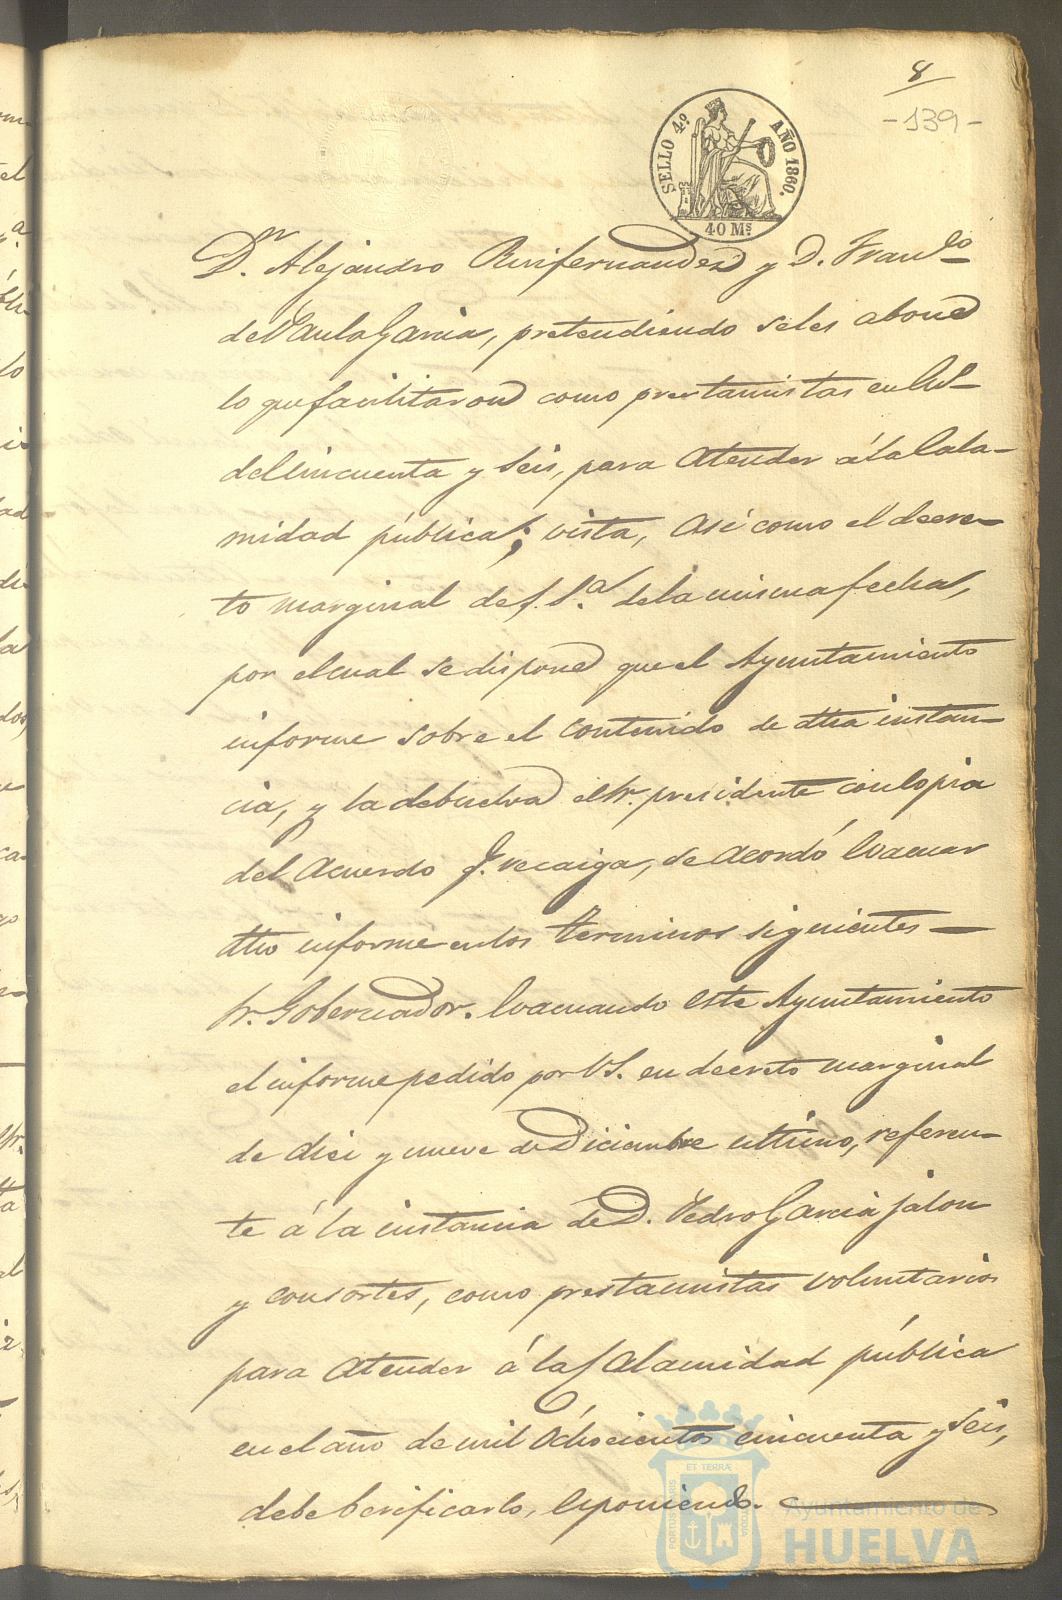 8
-139-
SELLO 4º AÑO 1860.
40 Ms.
Dn. Alejandro Rinfernandez y D. Franco.
de Paula Garcia, pretendiendo seles abone
lo que facilitaron como prestamistas en
del cincuenta y seis, para atender á la Cala-
midad pública; vista, asi como el decre-
to marginal de S. Sa. dela misma fecha,
por elcual se dispone que el Ayuntamiento
informe sobre el contenido de dha instan-
cia, y la debuelva el Sr. presidente con copia
del acuerdo q. recaiga, se acordó Evacuar
dho informe enlos terminos siguientes —
Sr. Gobernador. Evacuando este Ayuntamiento
el informe pedido por VS. en decreto marginal
de diez y nueve de Diciembre ultimo, referen-
te á la instancia de D. Pedro Garcia Jalon
y consortes, como prestamistas voluntarios
para atender á la Calamidad pública
en el año de mil Ochocientos cincuenta y seis,
debe berificarlo, esponiendo.
PORTUS MARIS ET TERRÆ CUSTODIA
Ayuntamiento de
HUELVA